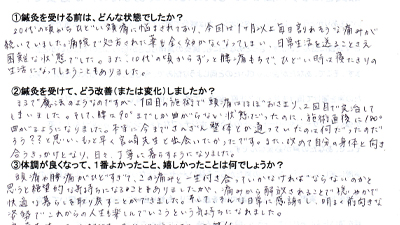 ①鍼灸を受ける前は、どんな状態でしたか？
20代の頃からひどい頭痛に悩まされており、今回は1ヶ月以上毎日割れそうな痛みが
続いていました。病院で処方された薬も全く効かなくなってしまい、日常生活を送ることさえ
困難な状態でした。また、10代の頃からずっと腰も痛めていて、ひどい時は寝たきりの
生活になってしまうこともありました。
②鍼灸を受けて、どう改善（または変化）しましたか？
まるで魔法のようなのですが、1回目の施術で頭痛はほぼおさまり、2回目で完治して
しまいました。そして、腰も90°までしか曲がらない状態だったのに、施術直後に180°
曲がるようになりました。本当に今までさんざん整体とか通っていたのは何だったのだろ
う？？と思い、もっと早く宮崎先生と出会いたかったです。また、改めて自分の身体と向き
合うきっかけとなり、日々、丁寧に暮らすようになりました。
③体調が良くなって１番よかったこと、嬉しかったことは何でしょうか？
頭痛や腰痛がひどすぎて、この痛みと一生付き合っていかなければならないのかと
思うと絶望的な気持ちになることもありましたが、痛みから解放されることで穏やかで
快適な暮らしを取り戻すことができました。そして、そんな日常に感謝し、明るく前向きな
姿勢でこれからの人生を楽しんでいこうという気持ちになれました。